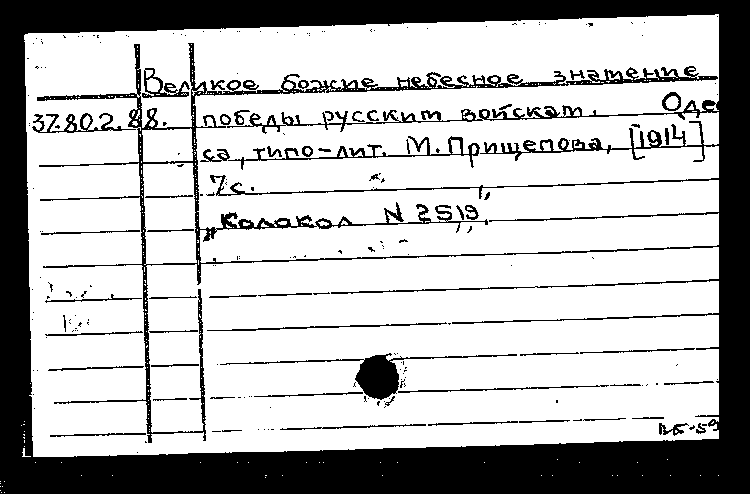 Великое божие небесное знамение
37.80.2.88. победы русским войскам. Одес
са, типо-лит. М. Прищепова, [1914]
7 с.
„Колокол N 2519"